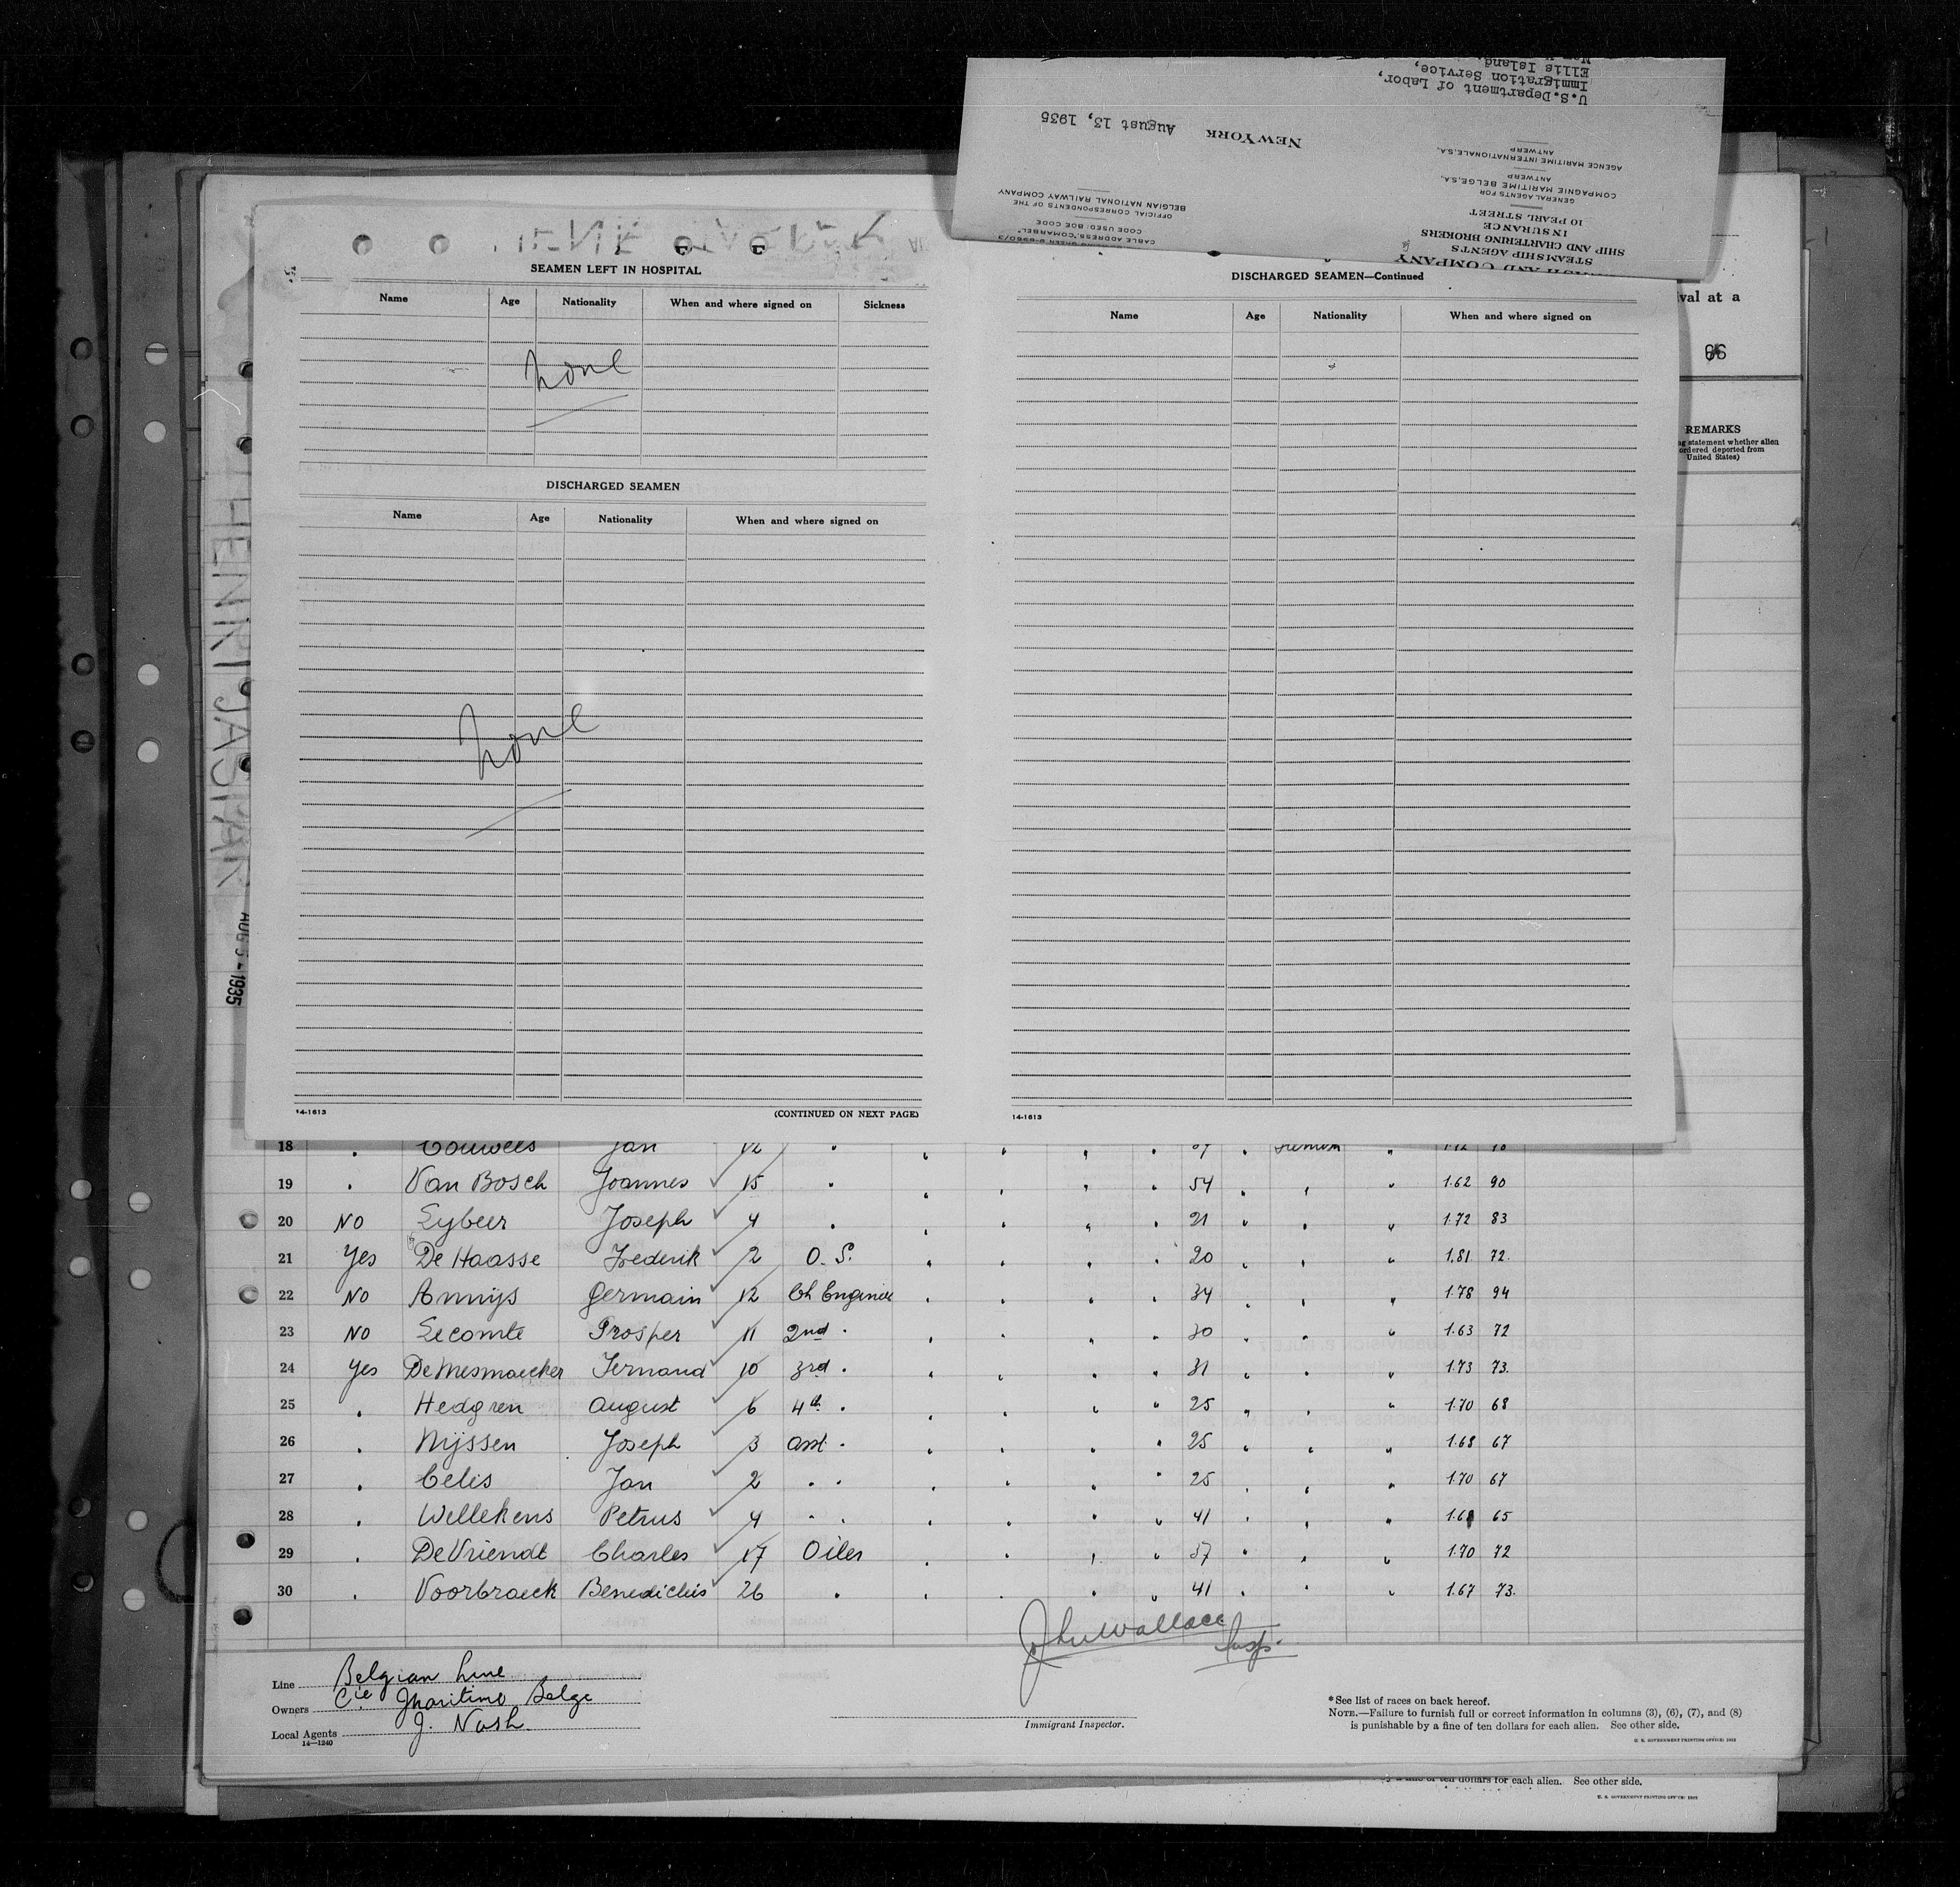 U.S.Department of Labor,
Immigration Service,
Ellis Island
NEW YORK August 13, 1935
AGENCE MARITIME INTERNATIONALE,S.A.
ANTWERP
COMPAGNIE MARITIME BELGE,S.A.
ANTWERP
GENERAL AGENTS FOR
10 PEARL STREET
INSURANCE
SHIP AND CHARTERING BROKERS
STEAMSHIP AGENTS
AND COMPANY
BELGIAN NATIONAL RAILWAY COMPANY
OFFICIAL CORRESPONDENTS OF THE
CODE USED: BOE CODE
CABLE ADDRESS,"COMARBEL"
SEAMEN LEFT IN HOSPITAL
Name Age Nationality When and where signed on Sickness
none
DISCHARGED SEAMEN
Name Age Nationality When and where signed on
none
14-1613 (CONTINUED ON NEXT PAGE)
DISCHARGED SEAMEN—Continued
Name Age Nationality When and where signed on
14-1613
val at a
REMARKS
statement whether alien
ordered deported from
United States)
HENRI JASPAR
AUG 5 - 1935
18 " Couwels Jan 12 "
19 " Van Bosch Joannes 15 " 54 1.62 90
20 NO Eybeer Joseph 4 " 21 1.72 83
21 Yes De Haasse Frederik 2 O.S. 20 1.81 72.
22 NO Annys Germain 12 Ch Engineer 34 1.78 94
23 NO Lecomte Prosper 11 2nd " 30 1.63 72
24 Yes De Mesmaecker Fernand 10 3rd " 31 1.73 73.
25 " Hedgren August 6 4th " 25 1.70 68
26 " Nyssen Joseph 3 asst " 25 1.68 67
27 " Celis Jan 2 " " 25 1.70 67
28 " Wellekens Petrus 4 " " 41 65
29 " De Vriendt Charles 17 Oiler 37 1.70 72
30 " Voorbraeck Benedictus 26 " 41 1.67 73.
John Wallace
Insp.
Line Belgian Line
Owners Cie Maritime Belge
Local Agents J. Nash
14—1240
Immigrant Inspector.
*See list of races on back hereof.
NOTE.—Failure to furnish full or correct information in columns (3), (6), (7), and (8)
is punishable by a fine of ten dollars for each alien. See other side.
U. S. GOVERNMENT PRINTING OFFICE:
of ten dollars for each alien. See other side.
U. S. GOVERNMENT PRINTING OFFICE: